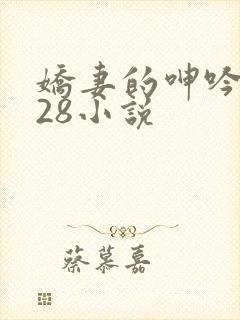 嬌妻的呻吟
28小說
蔡慕嘉